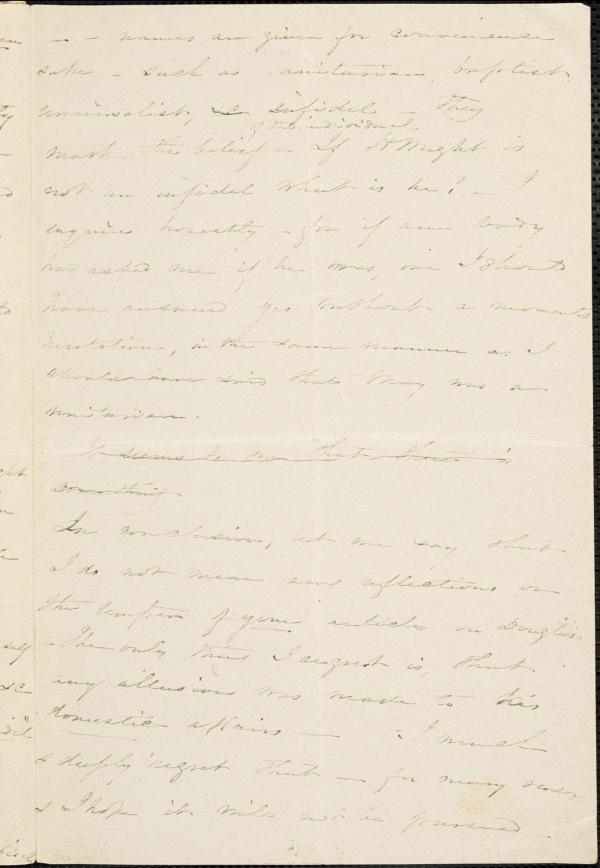 – – names are given for convenience
sake – such as unitarian, baptist
universalist, &c infidel – They
of the individual.
mark the belief – If H Wright is
not an infidel what is he? – I
inquire honestly – for if any body
had asked me if he was, one I should
have answered yes without a moments
hesitation, in the same manner as I
should have said that May was a
unitarian.
It seems to me that there is
something
In conclusion, let me say that
I do not mean any reflections on
the temper of your articles on Douglass.
– The only thing I regret is, that
any allusion was made to his
domestic affairs — – I much
& deeply regret that — for many reason
& I hope it will not be pursued –